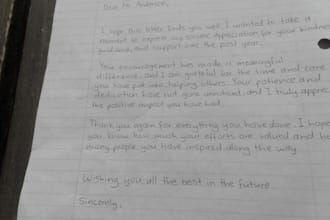 Dear Mr. Anderson,
I hope this letter finds you well. I wanted to take a
moment to express my sincere appreciation for your kindness,
guidance, and support over the past year.
Your encouragement has made a meaningful
difference, and I am grateful for the time and care
you have put into helping others. Your patience and
dedication have not gone unnoticed, and I truly appreciate
the positive impact you have had.
Thank you again for everything you have done. I hope
you know how much your efforts are valued and how
many people you have inspired along the way.
Wishing you all the best in the future.
Sincerely,